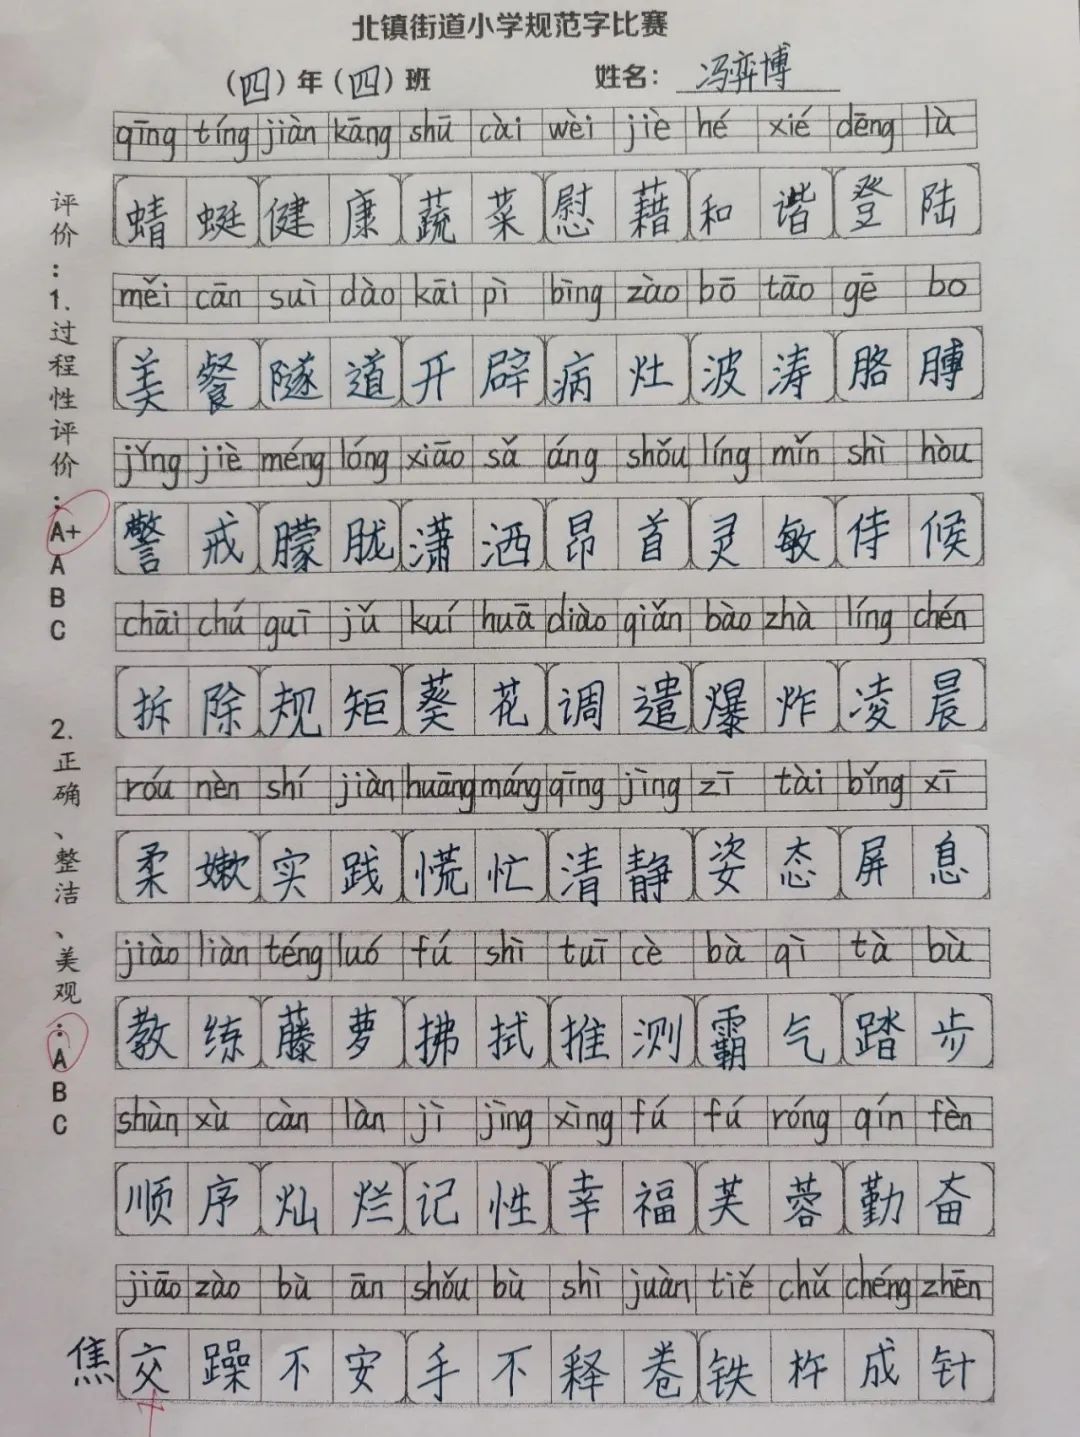 北镇街道小学规范字比赛
（四）年（四）班 姓名：冯弈博
qīng tíng jiàn kāng shū cài wèi jiè hé xié dēng lù
蜻蜓健康蔬菜慰藉和谐登陆
měi cān suì dào kāi pì bìng zào bō tāo gē bo
美餐隧道开辟病灶波涛胳膊
jǐng jiè méng lóng xiāo sǎ áng shǒu líng mǐn shì hòu
警戒朦胧潇洒昂首灵敏侍候
chāi chú guī jǔ kuí huā diào qiǎn bào zhà líng chén
拆除规矩葵花调遣爆炸凌晨
róu nèn shí jiàn huāng máng qīng jìng zī tài bǐng xī
柔嫩实践慌忙清静姿态屏息
jiào liàn téng luó fú shì tuī cè bà qì tà bù
教练藤萝拂拭推测霸气踏步
shùn xù càn làn jì jìng xìng fú fú róng qín fèn
顺序灿烂记性幸福芙蓉勤奋
jiāo zào bù ān shǒu bù shì juàn tiě chǔ chéng zhēn
焦 交躁不安手不释卷铁杵成针
评价：1.过程性评价：A+ A B C
2.正确、整洁、美观：A B C